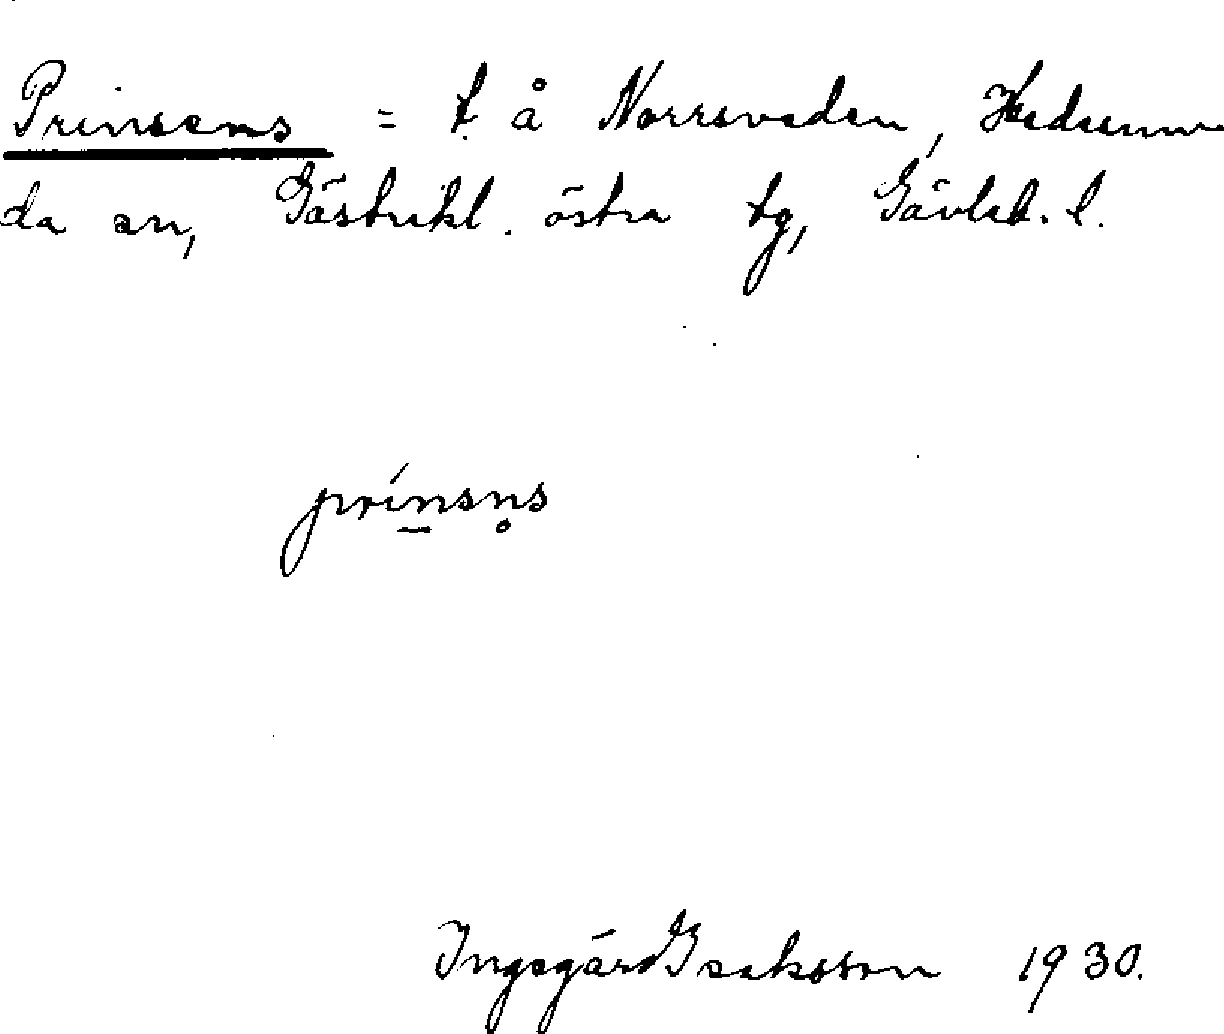 Prinsens = t. å Norrsveden, Hedesun-
da sn, Gästrikl. östra tg, Gävleb. l.
prı́n̲sn̥s
Ingegärd Isaksson 1930.